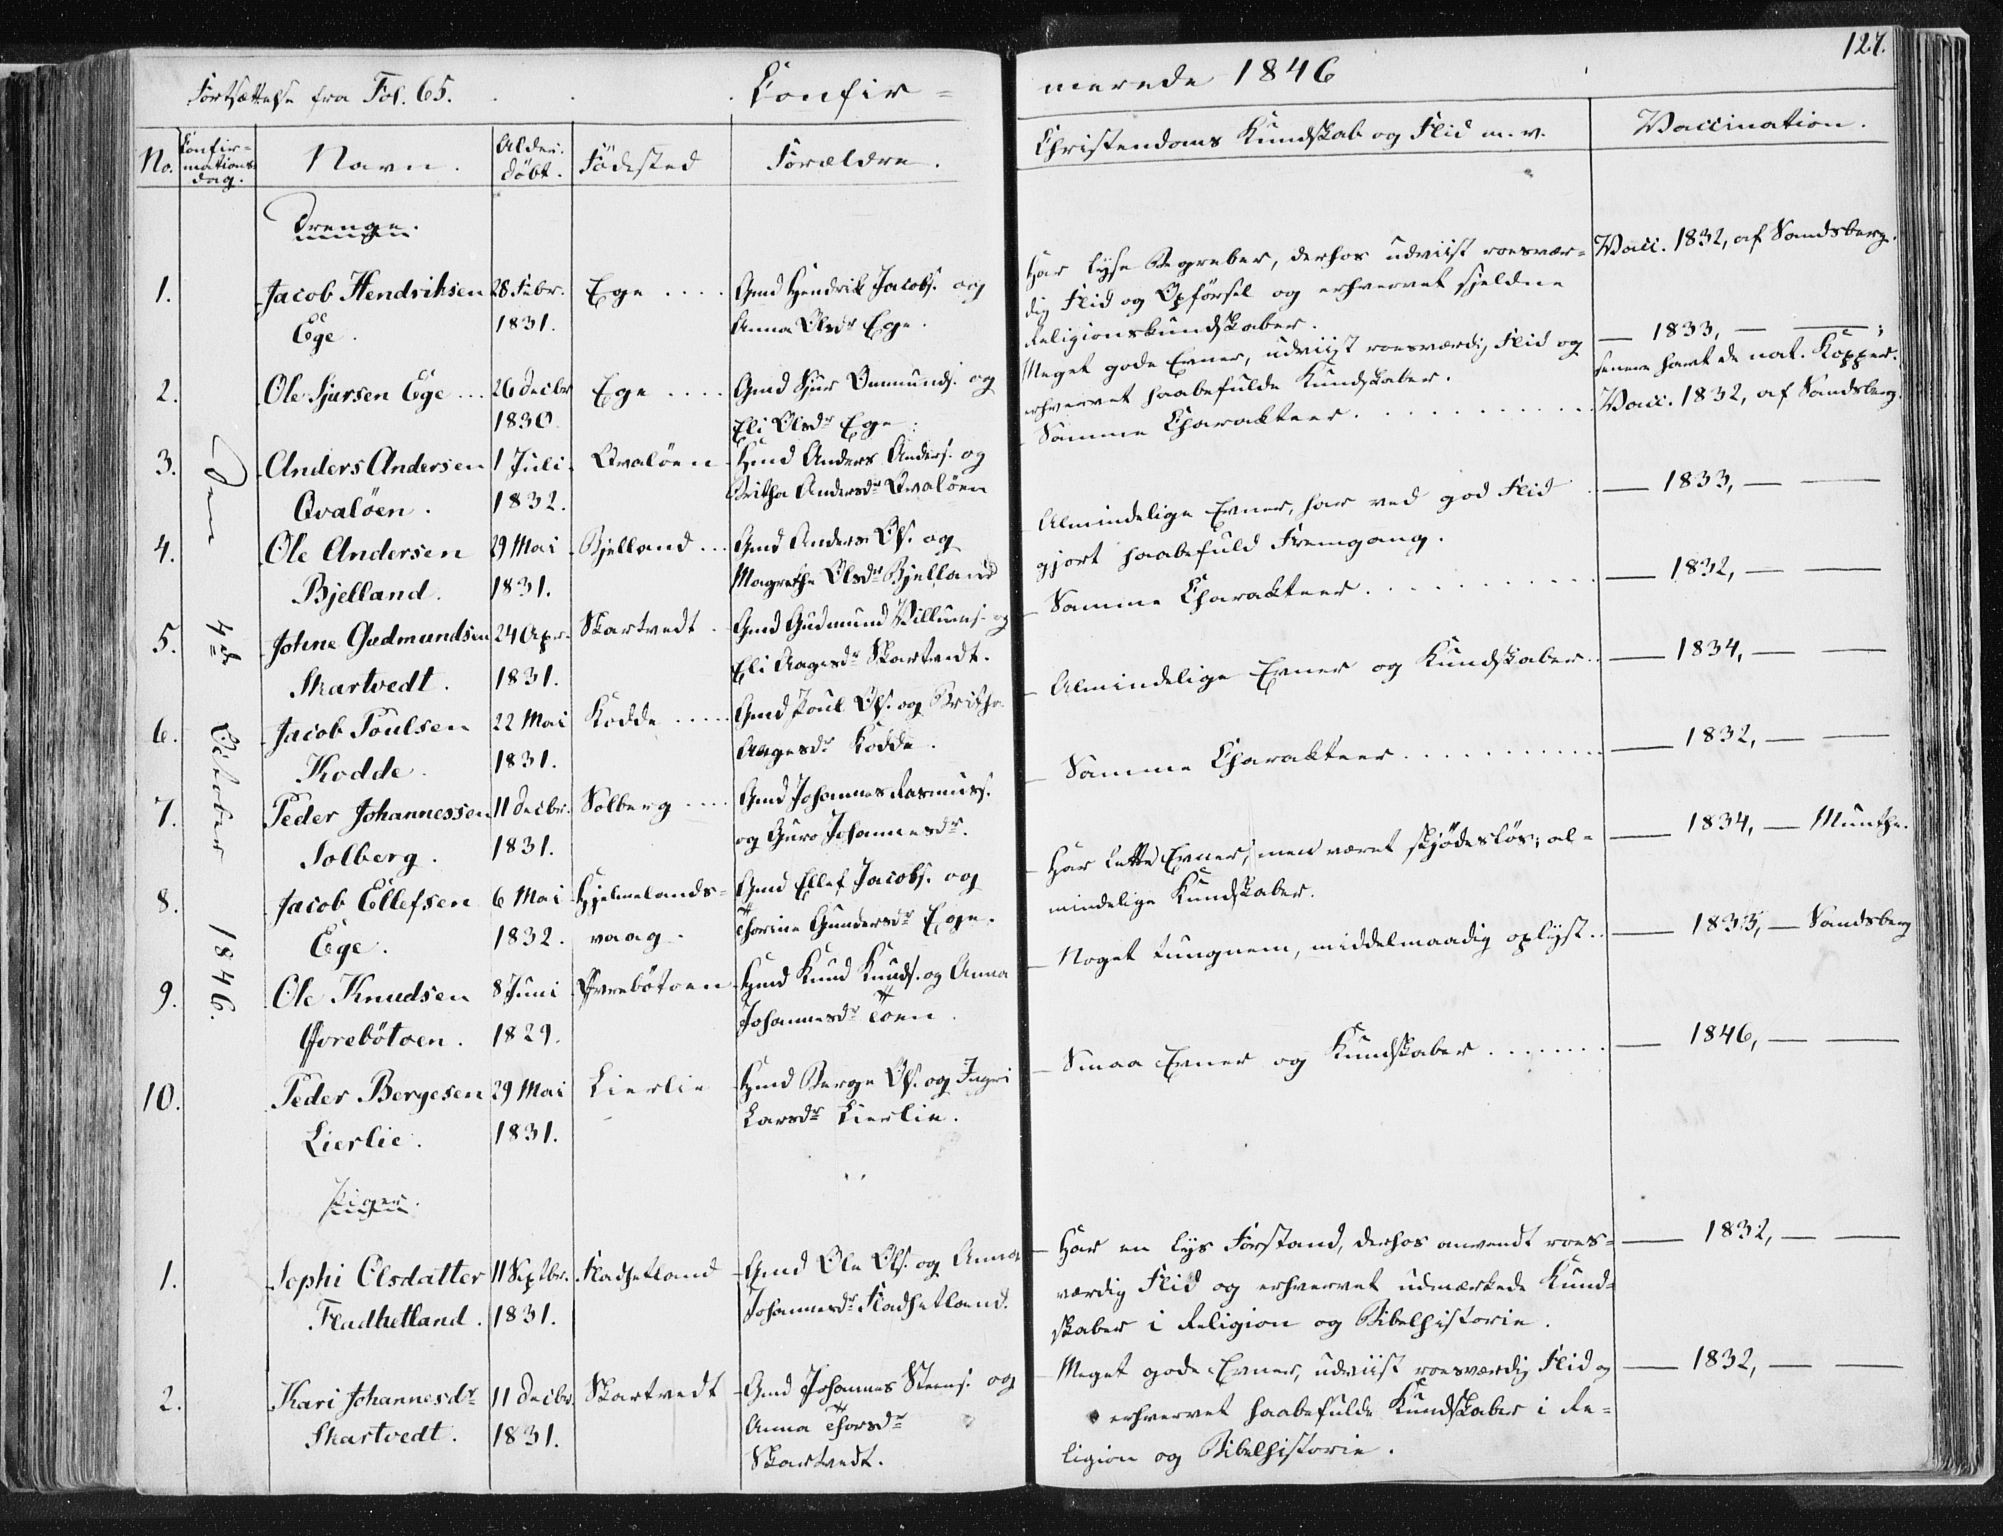 Fortsættelse fra Fol. 65.
Confir=
merede 1846
127.
No.
Confir=
mations=
dag.
Navn.
Alder.
døbt.
Födested
Forældre.
Christendoms Kundskab og Flid m. v.
Vaccination.
Den 4de October 1846.
Drenge.
1.
Jacob Hendriksen
Ege.
28 Febr.
1831.
Ege ....
Gmd Hendrik Jacobs. og
Anna Olsdr Ege.
Har lyse Begreber, derhos udviist roesvær=
dig Flid og Opförsel og erhvervet sjeldne
Religionskundskaber.
Vacc. 1832, af Sandsberg.
2.
Ole Sjursen Ege ...
26 Decbr
1830.
Ege ....
Gmd Sjur Omunds. og
Eli Olsdr Ege.
Meget gode Evner, udviist roesværdig Flid og
erhvervet haabefulde Kundskaber.
— 1833, — — ;
senere havt de nat. Kopper.
3.
Anders Andersen
Qvalöen.
1 Juli
1832.
Qvalöen
Hmd Anders Anders. og
Britha Andersdr Qvalöen
Samme Charakteer ..........
Vacc. 1832, af Sandsberg.
4.
Ole Andersen
Bjelland.
29 Mai
1831.
Bjelland ...
Gmd Anders Ols. og
Magrethe Olsdr Bjelland
Almindelige Evner, har ved god Flid
gjort haabefuld Fremgang.
— 1833, — —
5.
Johne Gudmundsen
Skartvedt.
24 Apr.
1831.
Skartvedt.
Gmd Gudmund Villums. og
Eli Aagesdr Skartvedt.
Samme Charakteer ..........
— 1832, — —
6.
Jacob Poulsen
Kodde.
22 Mai
1831.
Kodde .....
Gmd Poul Ols. og Britha
Aagesdr Kodde.
Almindelige Evner og Kundskaber..
— 1834, — —
7.
Peder Johannessen
Solberg.
11 Decbr.
1831.
Solberg ....
Gmd Johannes Rasmuss.
og Guro Johannesdr.
Samme Charakteer ..........
— 1832, — —
8.
Jacob Ellefsen
Ege.
6 Mai
1832.
Hjelmelands=
vaag.
Gmd Ellef Jacobs. og
Thorine Gundersdr Ege.
Har lette Evner, men været skjödeslös; al=
mindelige Kundskaber.
— 1834, — Munthe.
9.
Ole Knudsen
8 Juni
1829.
Hmd Knud Knuds. og Anna
Johannesdr Toen.
Noget tungnem, middelmaadig oplyst..
— 1833, — Sandsberg
10.
Peder Bergesen
Lierlie.
29 Mai
1831.
Lierlie
Hmd Berge Ols. og Ingri
Larsdr Lierlie.
Smaa Evner og Kundskaber .......
— 1846, — —
Piger.
1.
Sophi Olsdatter
Fladhetland.
11 Septbr.
1831.
Fladhetland
Gmd Ole Ols. og Anna
Johannesdr Fladhetland.
Har en lys Forstand, derhos anvendt roes=
værdig Flid og erhvervet udmærkede Kund=
skaber i Religion og Bibelhistorie.
— 1832, — —
2.
Kari Johannesdr
Skartvedt.
11 Decbr.
1831.
Skartvedt
Gmd Johannes Steens. og
Anna Thorsdr
Skartvedt.
Meget gode Evner, udviist roesværdig Flid og
erhvervet haabefulde Kundskaber i Re=
ligion og Bibelhistorie.
— 1832, — —